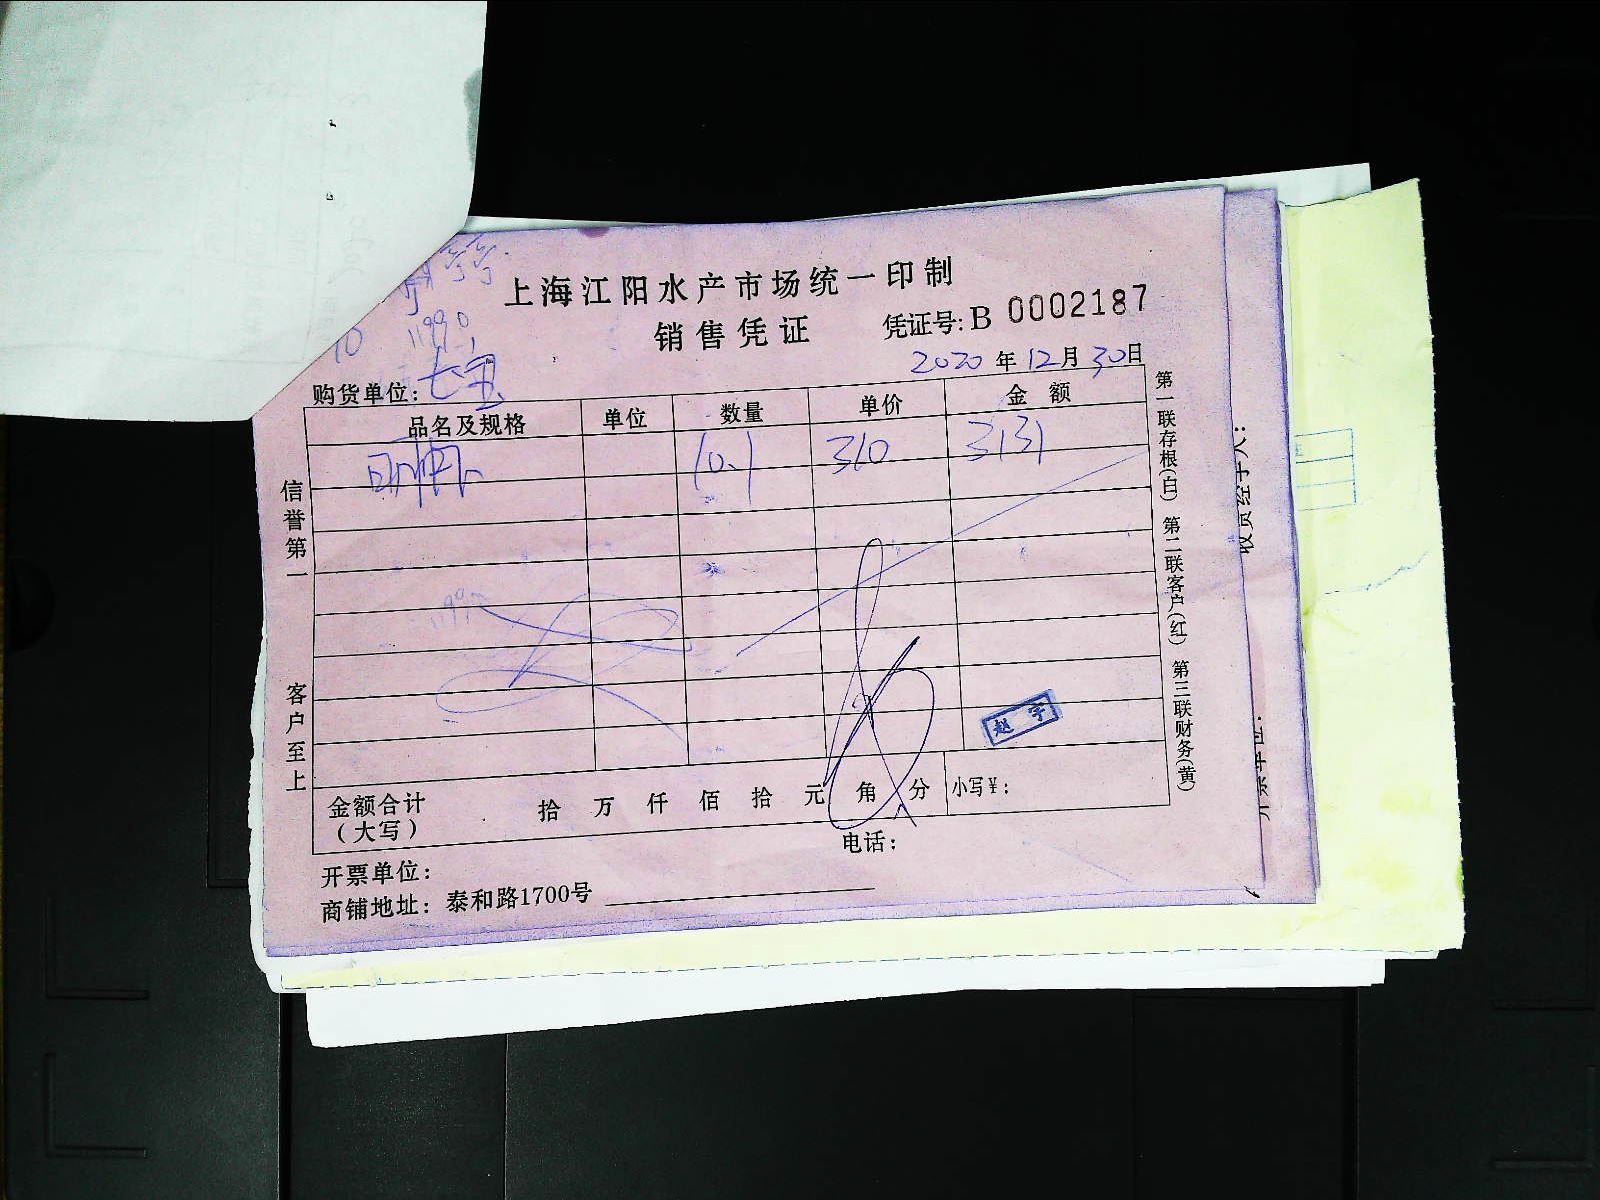 上海江阳水产市场统一印制
销售凭证 凭证号: B 0002187
2020 年 12 月 30 日
购货单位: 七宝
品名及规格 单位 数量 单价 金额
10.1 310 3131
赵宇
金额合计(大写) 拾 万 仟 佰 拾 元 角 分 小写¥:
开票单位: 电话:
商铺地址: 泰和路1700号
信誉第一 客户至上
第一联存根(白) 第二联客户(红) 第三联财务(黄)